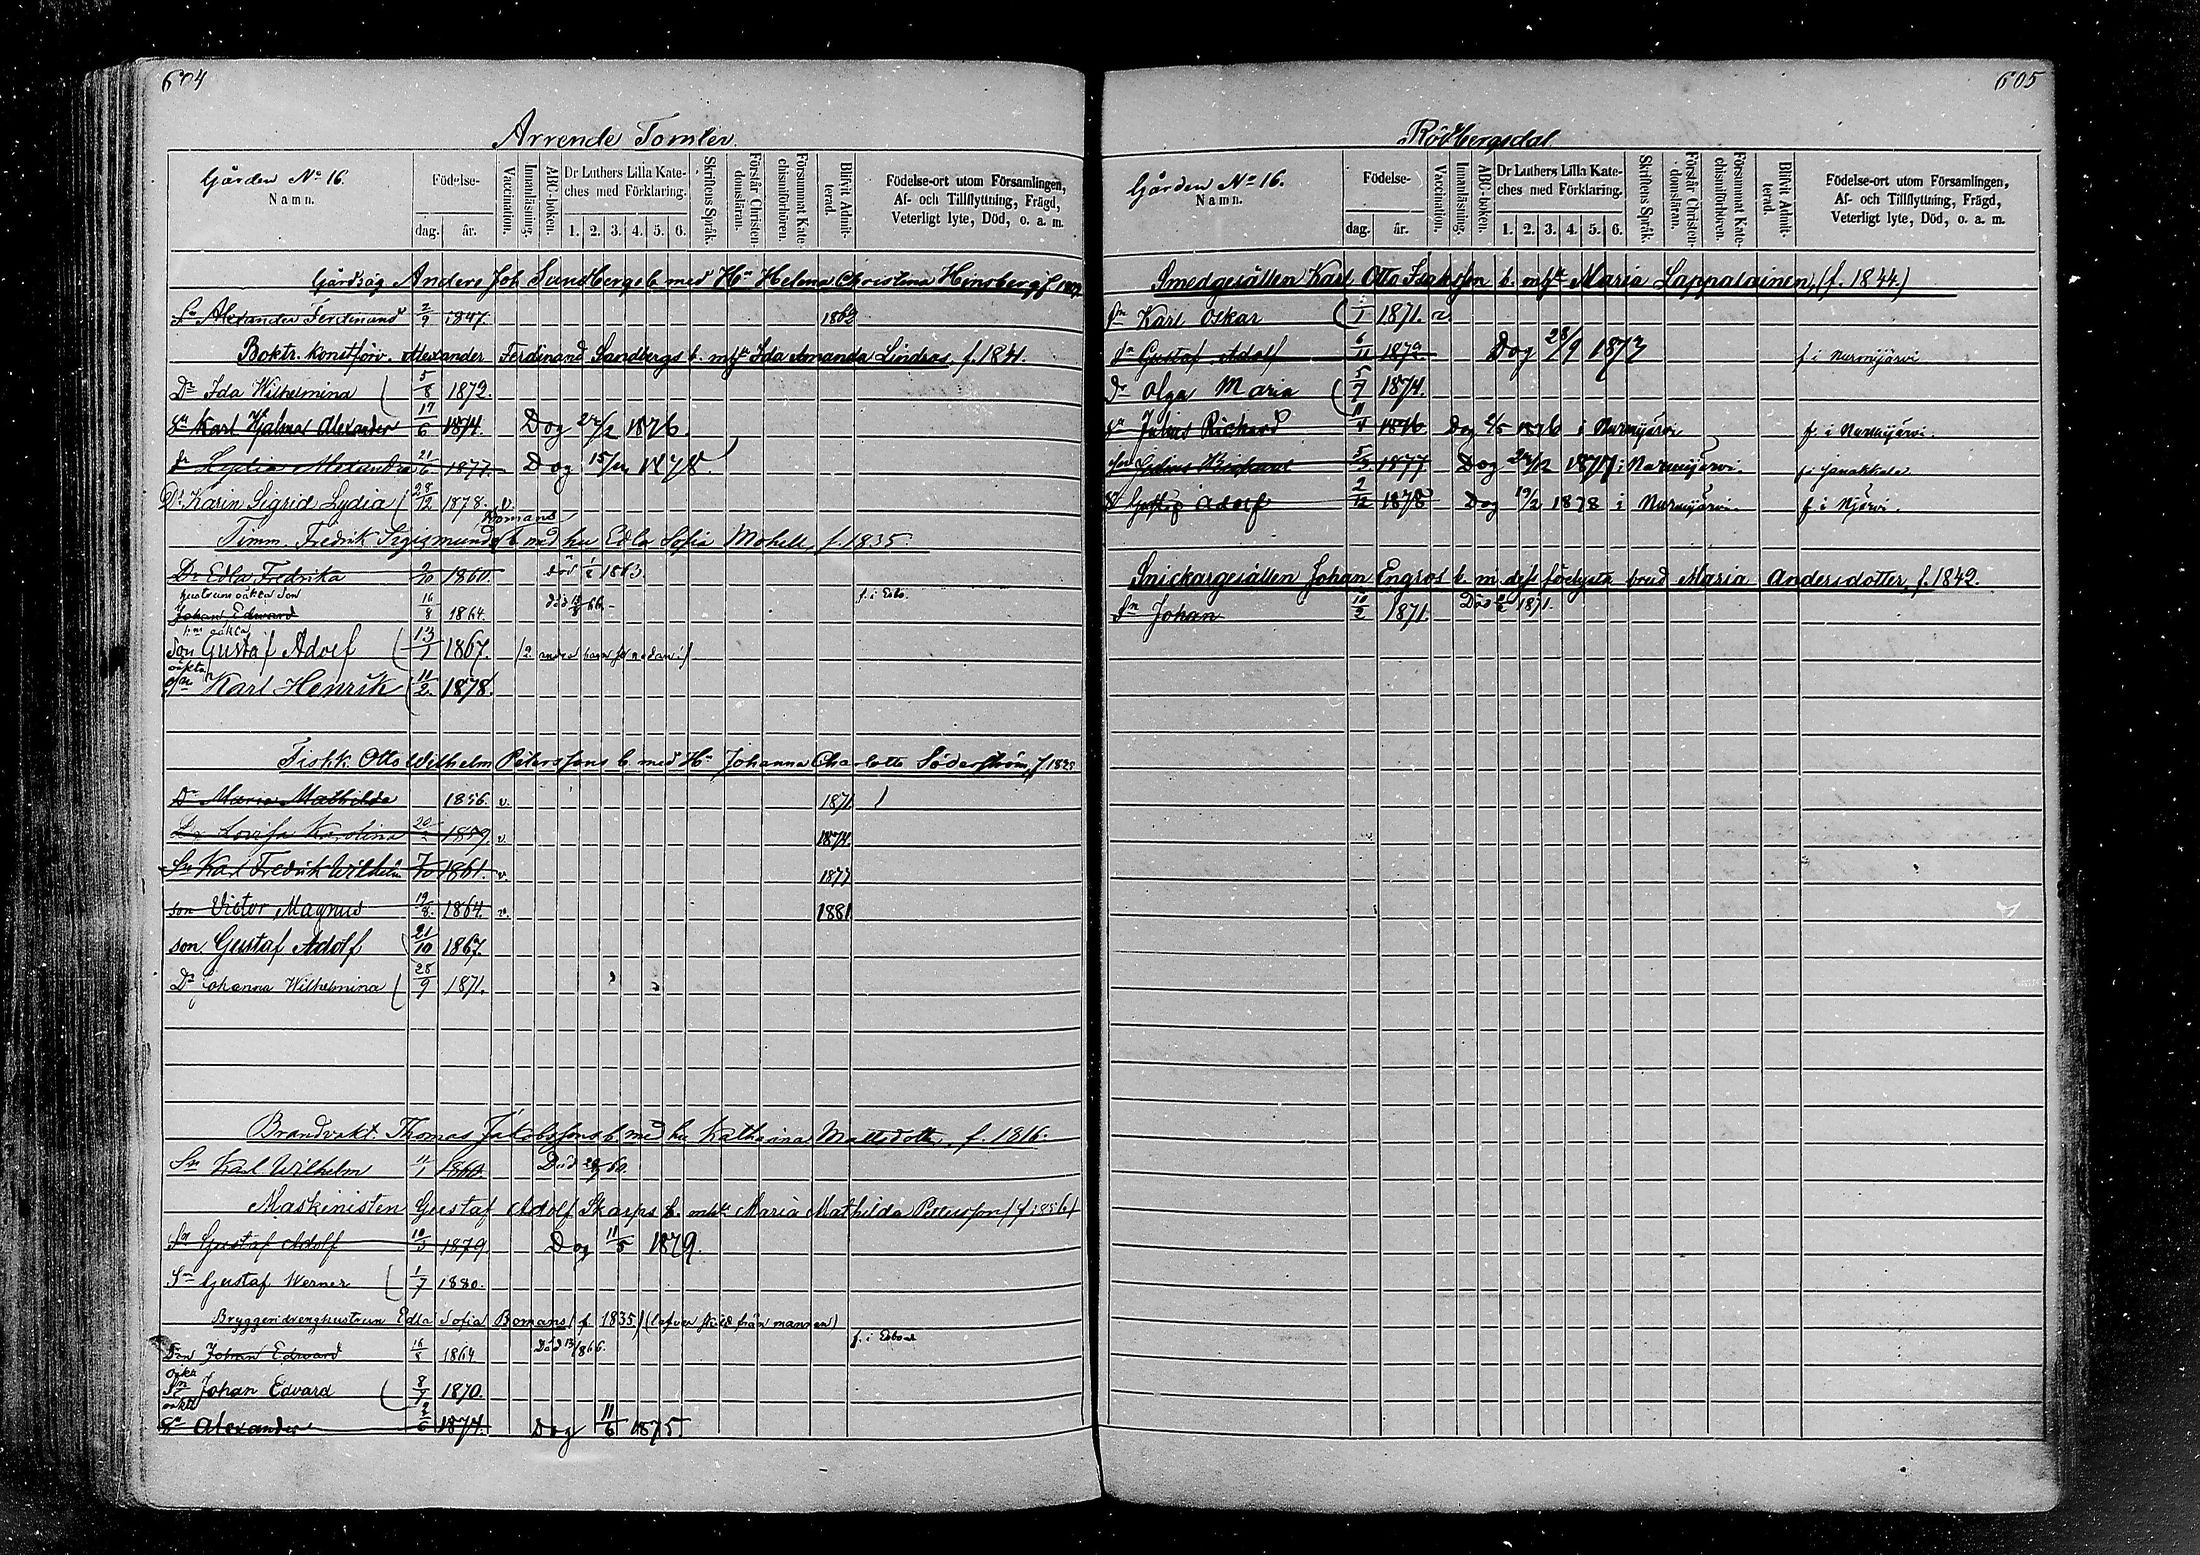 604
Arrende Tomter.
Gården No 16.
Namn.
Födelse-
dag. år.
Vaccination.
Innanläsning.
ABC-boken.
Dr Luthers Lilla Kate-
ches med Förklaring.
1. 2. 3. 4. 5. 6.
Skriftens Språk.
Förstår Christen-
domsläran.
Försummat Kate-
chismiförhören.
Blifvit Admit-
terad.
Födelse-ort utom Församlingen,
Af- och Tillflyttning, Frägd,
Veterligt lyte, Död, o. a. m.
Gårdsäg Anders Joh Sundbergs b. med Hu Helena Christina Heinsberg f.
Sn Alexander Ferdinand 2/9 1847.
Boktr. konstförv. Alexander Ferdinand Sandbergs b. m/h Ida Amanda Lindros, f. 1841.
Dr Ida Wilhelmina 5/8 1872.
Sn Karl Hjalmar Alexander 17/6 1874. Dog 1876.
dr Lydia Alexandra 21/6 1877. Dog 1878.
Dr Karin Sigrid Lydia 28/12 1878. v
Bomans
Timm. Fredrik Sigismunds b. med hu Edla Sofia Mohell, f. 1835.
Dr Edla Fredrika 2/10 1860. död 1863
hustruns oäkta son
Johan Edward 16/8 1864. död 66. f. i Esbo.
hus oäkta
son Gustaf Adolf 13/1 1867.
oäkta
Karl Henrik 11/2 1878.
Fiskk. Otto Wilhelm Peterssons b. med Hu Johanna Charlotta Söderström, f.
Dr Maria Mathilda 1856. v. 1871
Dr Lovisa Karolina 1859. v. 1874.
Sn Karl Fredrik Wilhelm 7/10 1861. v. 1877
son Victor Magnus 19/8 1864. v. 1881
son Gustaf Adolf 21/10 1867.
Dr Johanna Wilhelmina 28/9 1871.
Brandvakt. Thomas Jakobssons b. med hu Katharina Mattsdotter, f. 1816.
Sn Karl Wilhelm 11/1 1860. Död 60.
Maskinisten Gustaf Adolf Skarps b. m/h Maria Mathilda Petersson (f. 1856)
Sn Gustaf Adolf 10/3 1879 Dog 11/5 1879.
Sn Gustaf Werner 1/7 1880.
Bryggeridrenghustrun Edla Sofia Bomans (f. 1835) (lefver skild från mannen)
Son Johan Edward 16/8 1864 Död 13/ 866. f. i Esbo
oäkta
Sn Johan Edvard 8/7 1870.
oäkta
Sn Alexander 2/6 1874. Dog 11/6 1875.
605
Rödbergsdal
Gården No 16.
Namn.
Födelse-
dag. år.
Vaccination.
Innanläsning.
ABC-boken.
Dr Luthers Lilla Kate-
ches med Förklaring.
1. 2. 3. 4. 5. 6.
Skriftens Språk.
Förstår Christen-
domsläran.
Försummat Kate-
chismiförhören.
Blifvit Admit-
terad.
Födelse-ort utom Församlingen,
Af- och Tillflyttning, Frägd,
Veterligt lyte, Död, o. a. m.
Smedgesällen Karl Otto Isaksson b. m/h Maria Lappalainen, (f. 1844.)
Sn Karl Oskar 1/1 1871. v
Sn Gustaf Adolf 6/11 1872 Dog 28/9 1873 f. i Nurmijärvi
dr Olga Maria 5/7 1874.
Sn Julius Richard 11/4 1876 Dog 1876 i Nurmijärvi f. i Nurmijärvi.
Julius Richard 5/3 1877 Dog 1877 i Nurmijärvi. f. i Janakkala
Sn Gustaf Adolf 2/12 1878 Dog 19/2 1878 i Nurmijärvi. f. i Njärvi.
Snickargesällen Johan Engros b. m. dess förlofvsta brud Maria Andersdotter, f. 1842.
Sn Johan 10/2 1871. Död 1871.